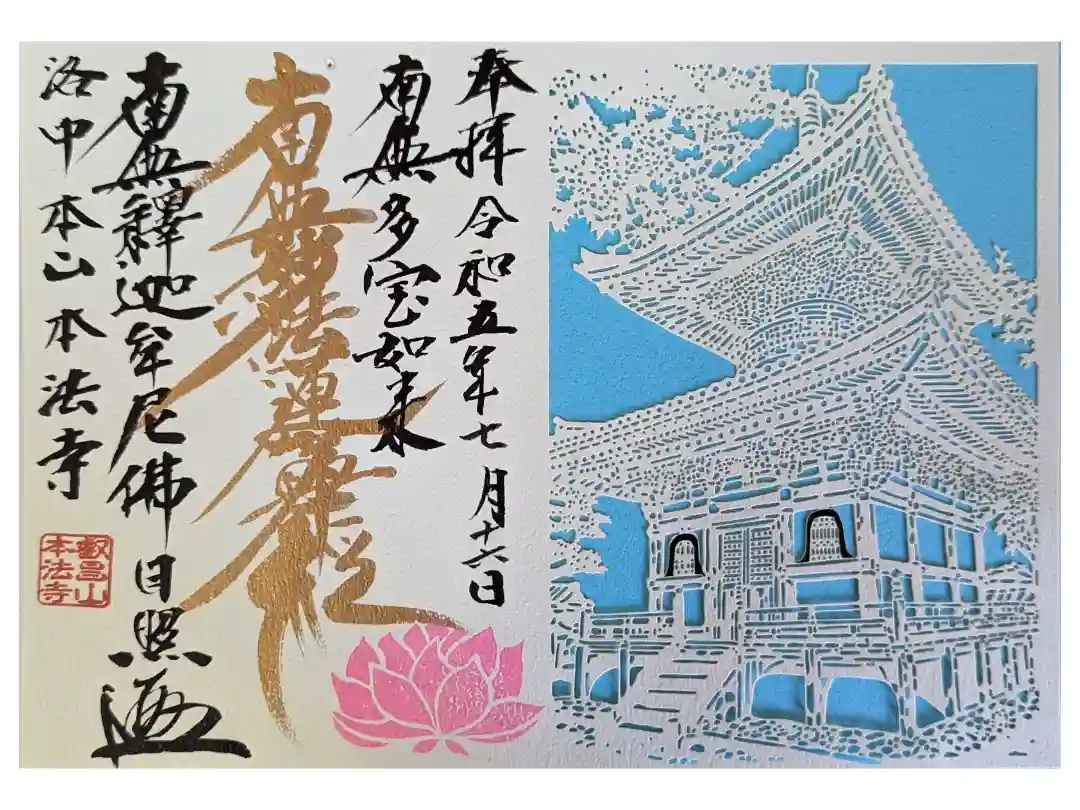 奉拝 令和五年七月十六日
南無多宝如来
南無妙法蓮華経
南無釋迦牟尼佛 日照
洛中本山本法寺
叡昌山
本法寺